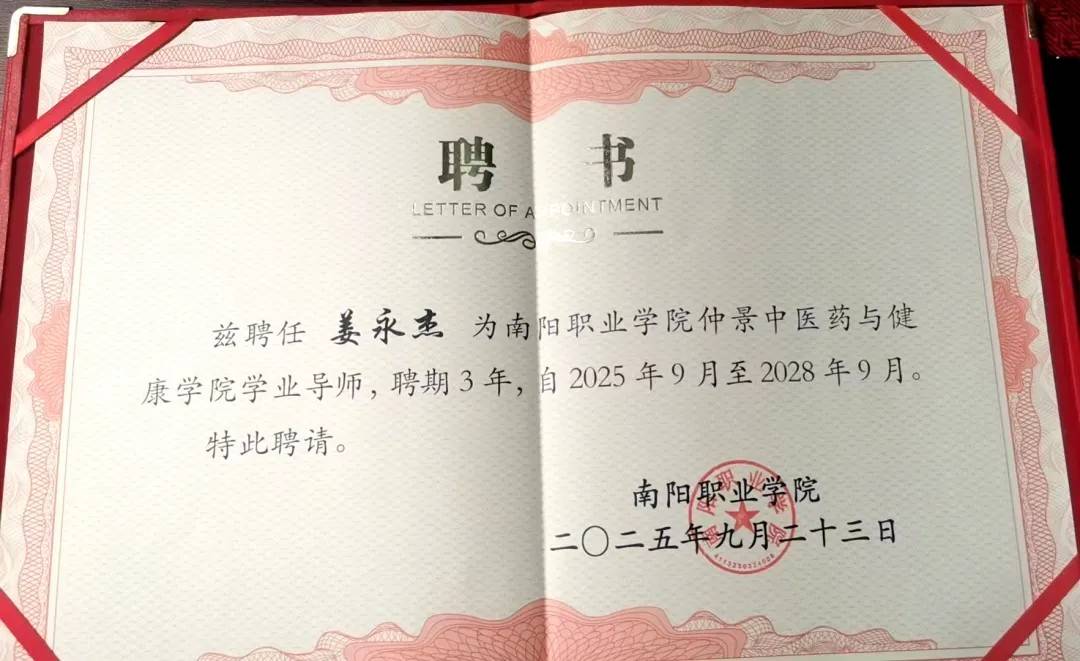 聘 书
LETTER OF APPOINTMENT
兹聘任 姜永杰 为南阳职业学院仲景中医药与健
康学院学业导师，聘期3年，自2025年9月至2028年9月。
特此聘请。
南阳职业学院
二〇二五年九月二十三日
南阳职业学院